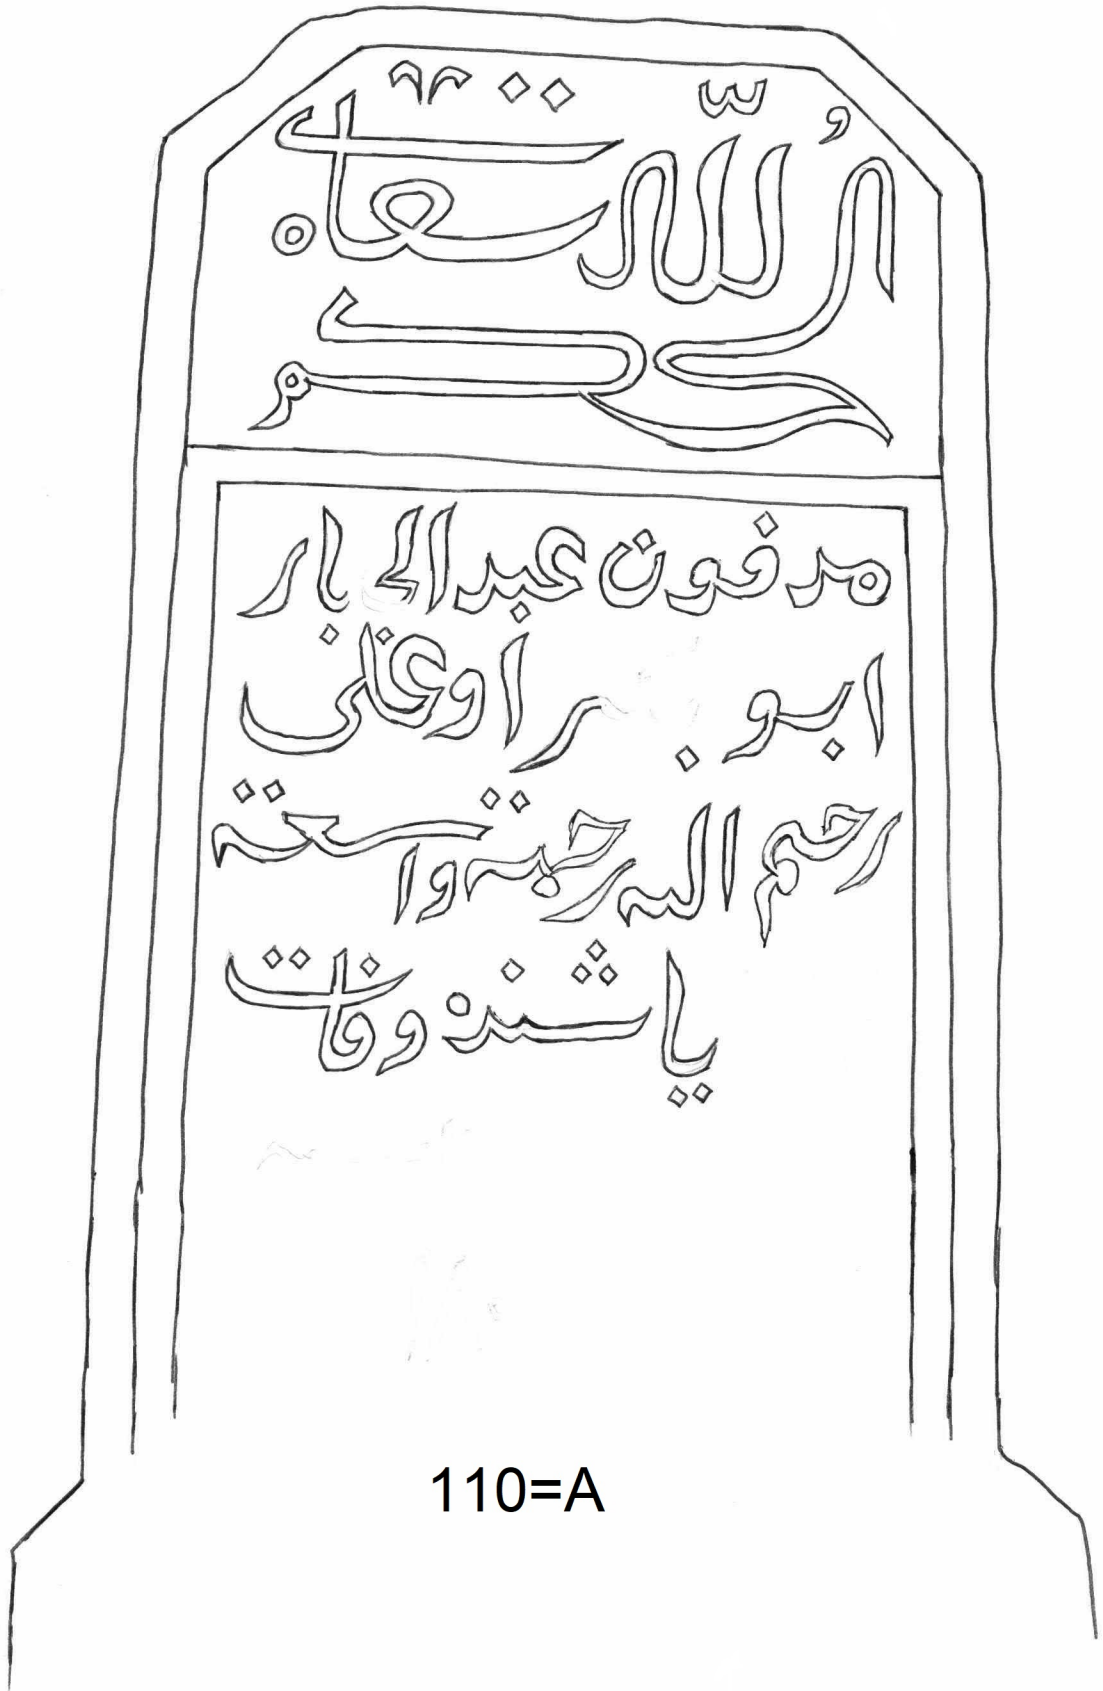 الحكم لله تعالى
مدفون عبدالجبار
ابو اوغلى
رحم الله رحمة واسعة
ياشنده وفات
110=A